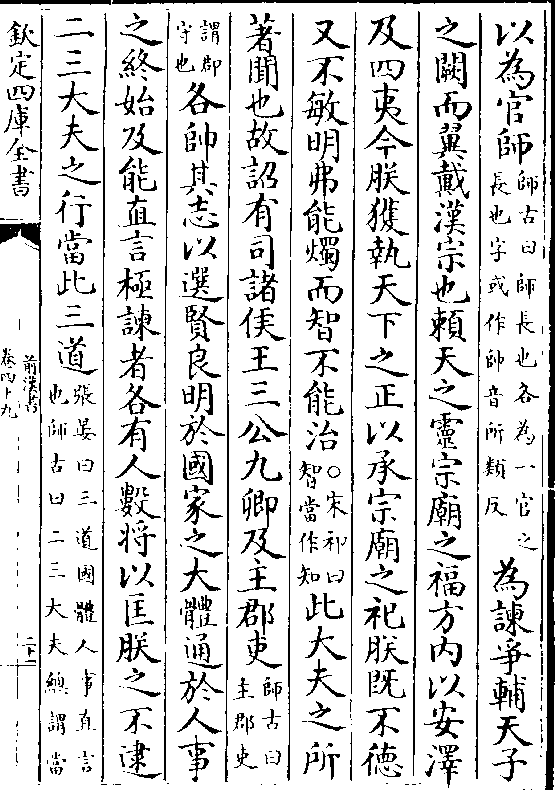 以為官師師古曰師長也各為一官之長也字或作帥音所類反為諫爭輔天子
之闕而翼戴漢宗也賴天之靈宗廟之福方內以安澤
及四夷今朕獲執天下之正以承宗廟之祀朕既不德
又不敏明弗能燭而智不能治○宋祁曰智當作知此大夫之所
著聞也故詔有司諸侯王三公九卿及主郡吏師古曰主郡吏
謂郡守也各帥其志以選賢良明於國家之大體通於人事
之終始及能直言極諫者各有人數將以匡朕之不逮
二三大夫之行當此三道張晏曰三道國體人事直言也師古曰二三大夫總謂當
欽定四庫全書
前漢書
卷四十九
二十二